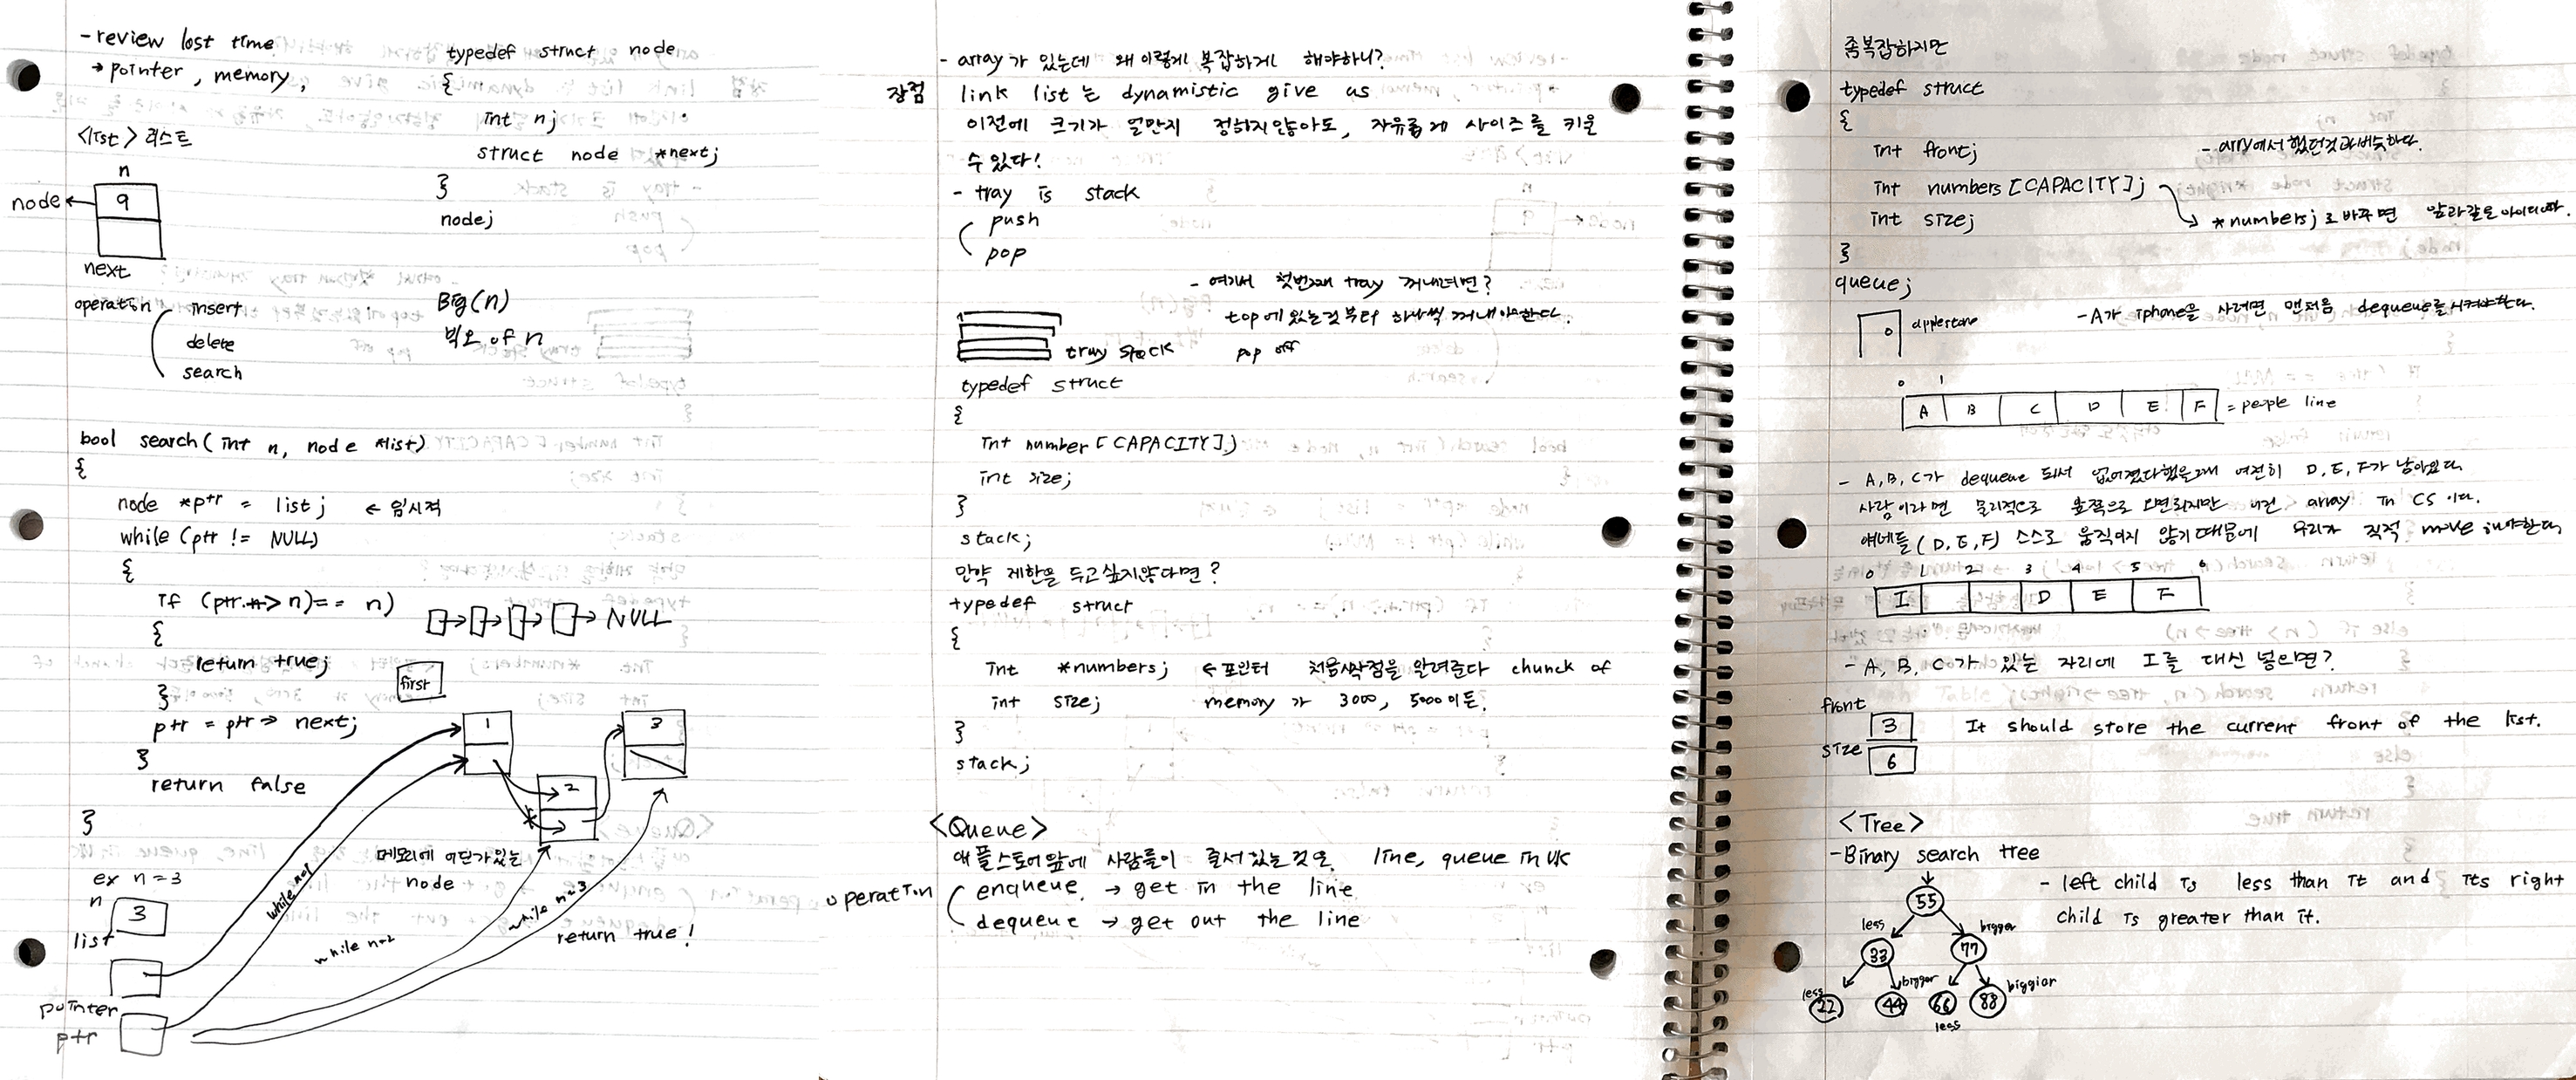 - review lost time
→ pointer, memory,
<list> 리스트
n
node
9
next
operation
insert
delete
search
typedef struct node
{
int n;
struct node *next;
}
node;
Big(n)
빅오 of n
bool search(int n, node *list)
{
node *ptr = list; ← 임시적
while (ptr != NULL)
{
if (ptr → n) == n)
{
return true;
}
ptr = ptr → next;
}
return false
}
→ → → → NULL
first
1
2
3
메모리에 어딘가있는
node
ex n=3
n
3
list
pointer
ptr
while n=1
while n=2
while n=3
return true!
- array가 있는데 왜 이렇게 복잡하게 해야하니?
장점 link list는 dynamistic give us
이전에 크기가 얼만지 정하지않아도, 자유롭게 사이즈를 키울
수 있다!
- tray is stack
push
pop
- 여기서 첫번째 tray 꺼내려면?
top에 있는것부터 하나씩 꺼내야한다.
tray stack
pop off
typedef struct
{
int number[CAPACITY];
int size;
}
stack;
만약 제한을 두고싶지않다면?
typedef struct
{
int *numbers; ← 포인터 처음시작점을 알려준다 chunck of
int size; memory가 3000, 5000이든.
}
stack;
<Queue>
애플스토어앞에 사람들이 줄서있는것은 line, queue in UK
operation
enqueue. → get in the line
dequeue → get out the line
줌복잡하지만
typedef struct
{
int front;
- arry에서 했던것과비슷하다.
int numbers[CAPACITY];
int size;
*numbers;로바꾸면 앞과같은아이디어다.
}
queue;
applestore
- A가 iphone을 사려면 맨처음 dequeue를시켜야한다.
0 1
A B C D E F = people line
- A, B, C가 dequeue 되서 없어졌다했을때 여전히 D, E, F가 남아있다.
사람이라면 물리적으로 앞쪽으로 오면되지만 이건 array in CS 이다.
얘네들(D, E, F) 스스로 움직이지 않기때문에 우리가 직접 move 해야한다.
0 1 2 3 4 5 6
I D E F
- A, B, C가 있는 자리에 I를 대신 넣으면?
front
3 It should store the current front of the list.
size
6
<Tree>
- Binary search tree
- left child is less than it and its right
child is greater than it.
55
less
bigger
33
77
less
bigger
biggier
22
44
66
88
less